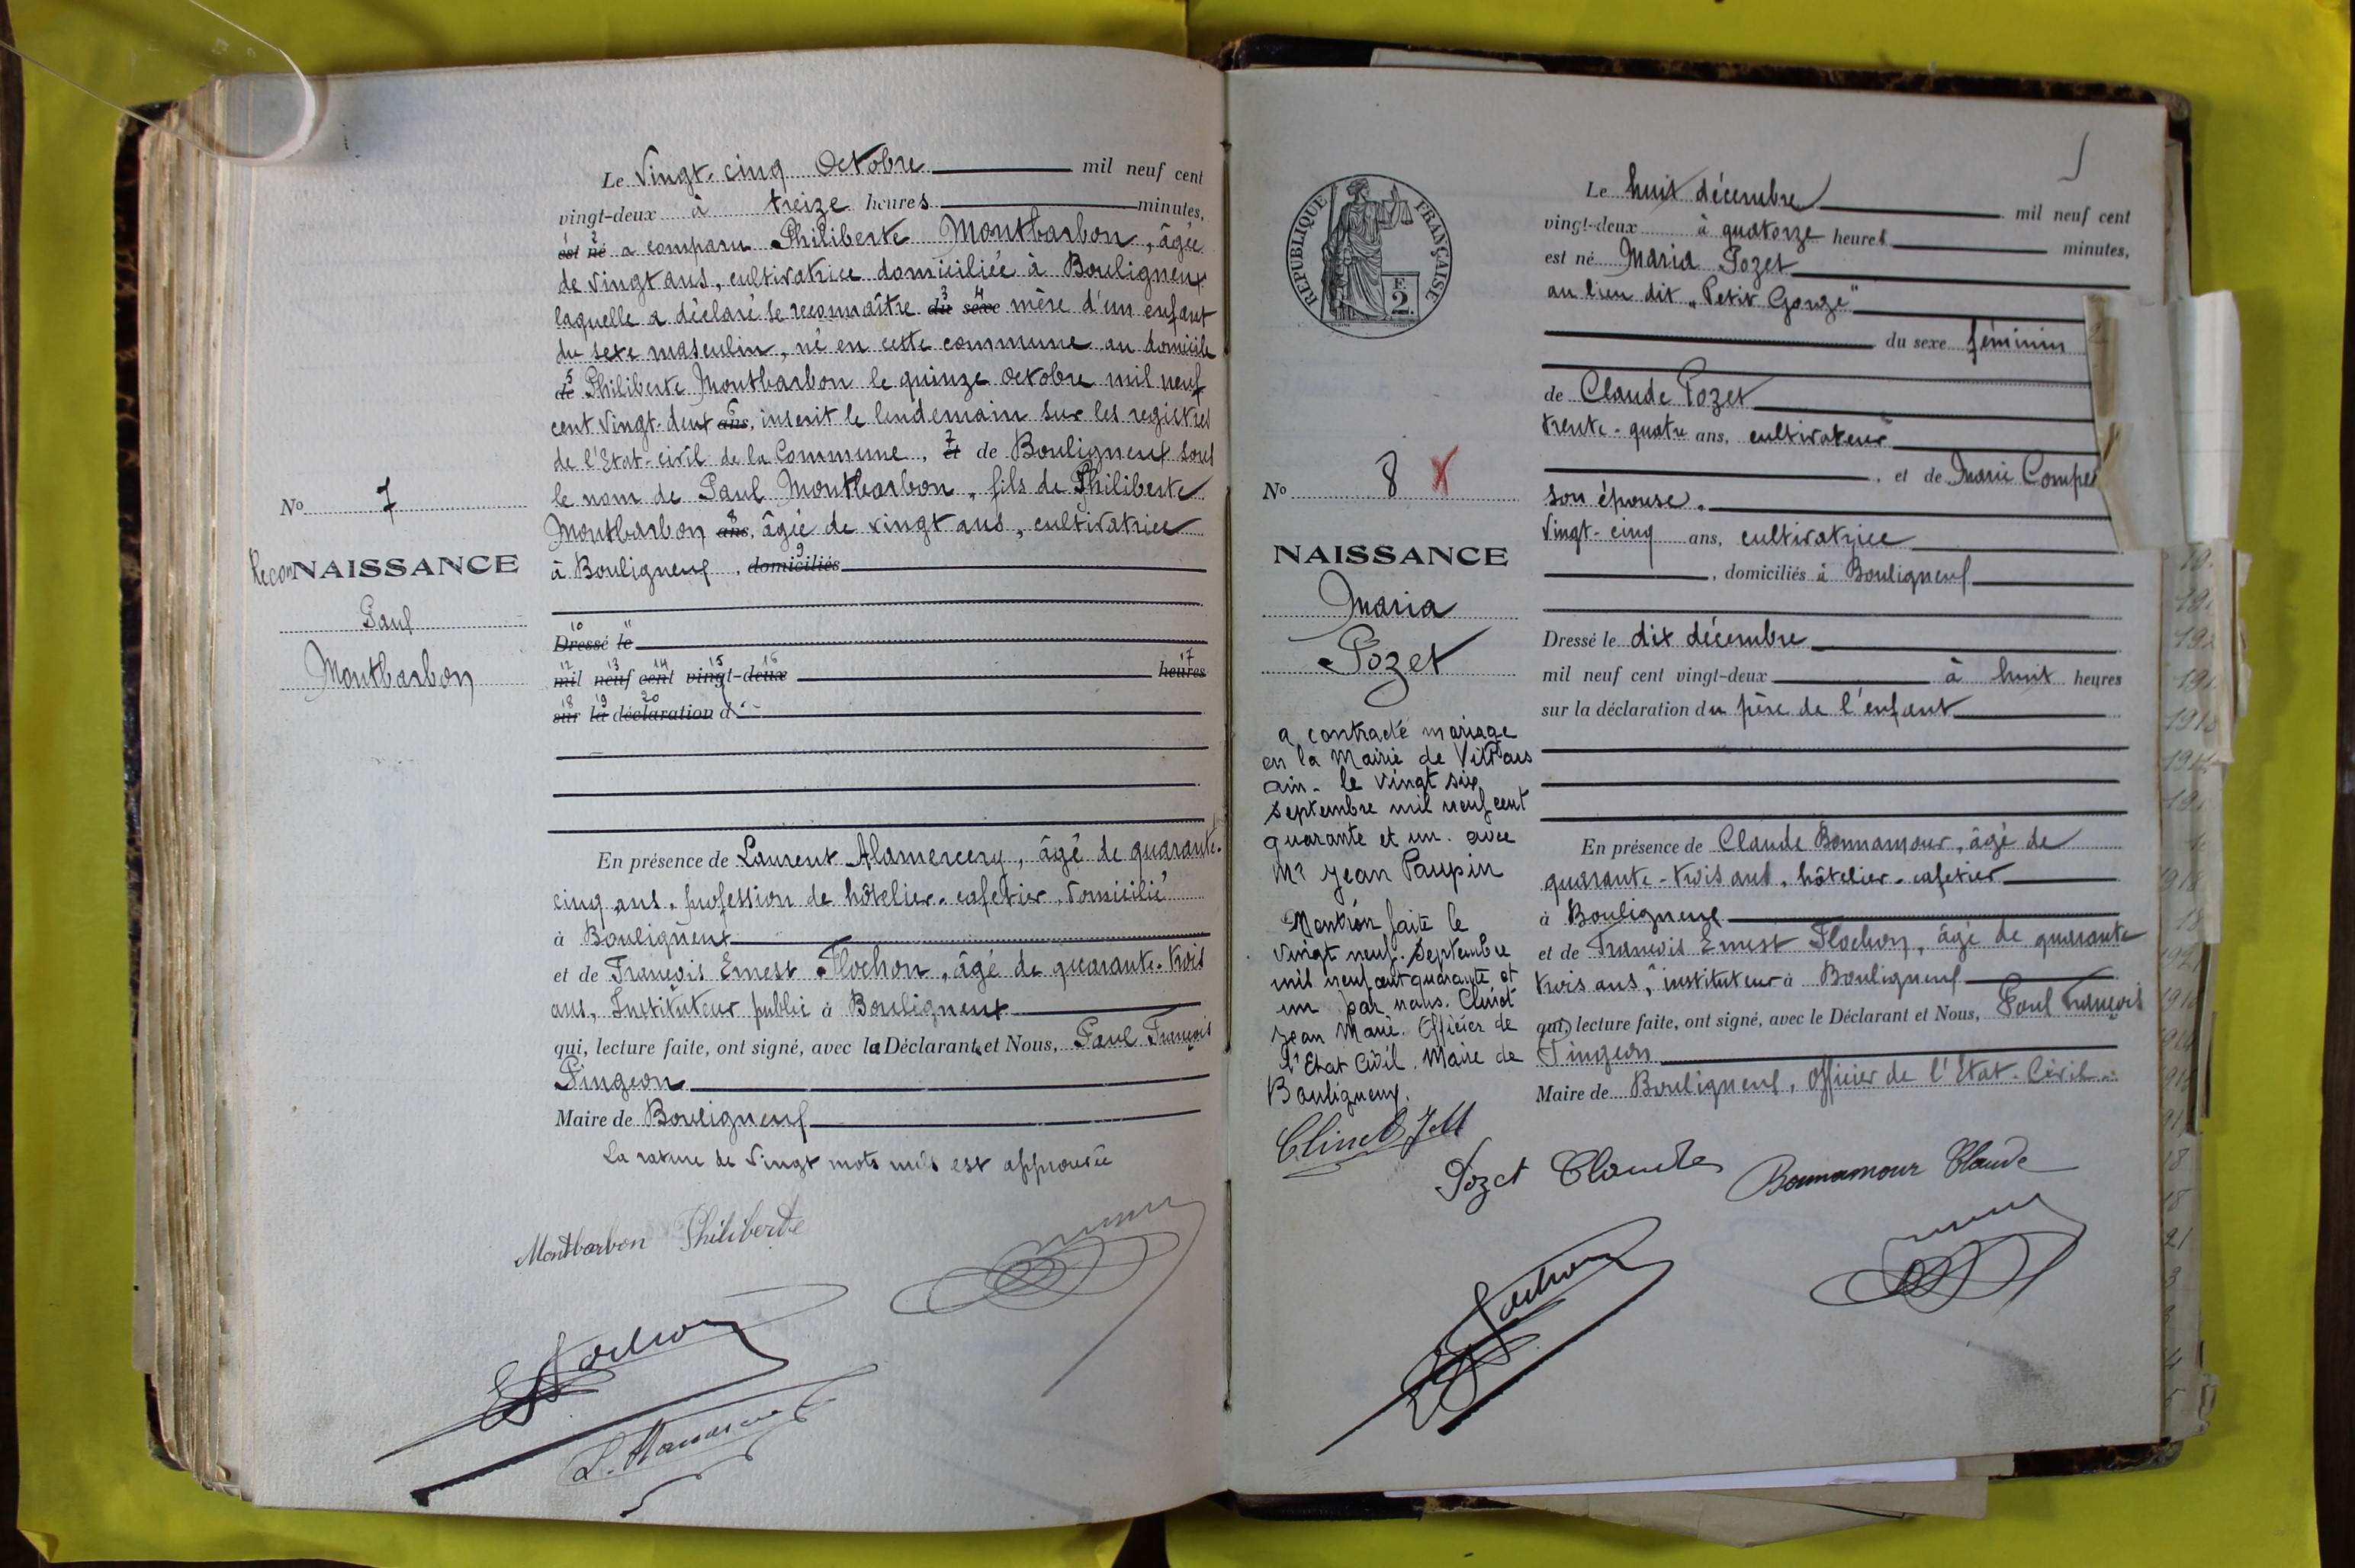 Le Vingt-cinq Octobre mil neuf cent
vingt-deux à treize heures minutes,
est né a comparu Philiberte Montbarbon, âgée
de vingt ans, cultivatrice domiciliée à Bouligneux
laquelle a déclaré se reconnaître du sexe mère d'un enfant
du sexe masculin, né en cette commune au domicile
de Philiberte Montbarbon le quinze Octobre mil neuf
cent vingt-deux ans, inscrit le lendemain sur les registres
de l'Etat-civil de la Commune, et de Bouligneux sous
le nom de Paul Montbarbon, fils de Philiberte
Montbarbon ans, âgée de vingt ans, cultivatrice
à Bouligneux, domiciliés
Dressé le
mil neuf cent vingt-deux heures
sur la déclaration d
En présence de Laurent Alamercery, âgé de quarante-
cinq ans, profession de hôtelier-cafetier, domicilié
à Bouligneux
et de François Ernest Flochon, âgé de quarante-trois
ans, Instituteur public à Bouligneux
qui, lecture faite, ont signé, avec la Déclarante et Nous, Paul François
Pingeon
Maire de Bouligneux
La rature de vingt mots nuls est approuvée
Montbarbon Philiberte
No 7
Recon NAISSANCE
Paul
Montbarbon
RÉPUBLIQUE FRANÇAISE
F
2
No 8 X
NAISSANCE
Maria
Pozet
a contracté mariage
en la Mairie de Villars
ain. le vingt six
septembre mil neuf cent
quarante et un. avec
Mr Jean Paupin
Mention faite le
vingt neuf. Septembre
mil neuf cent quarante et
un par nous. Clinet
Jean Marie. Officier de
l'Etat Civil. Maire de
Bouligneux.
Clinet JM
Le huit décembre mil neuf cent
vingt-deux à quatorze heures minutes,
est né Maria Pozet
au lieu dit "Petit Gorge"
du sexe féminin
de Claude Pozet
trente-quatre ans, cultivateur
, et de Marie Compe
son épouse.
Vingt-cinq ans, cultivatrice
, domiciliés à Bouligneux
Dressé le dix décembre
mil neuf cent vingt-deux à huit heures
sur la déclaration du père de l'enfant
En présence de Claude Bonnamour, âgé de
quarante-trois ans, hôtelier-cafetier
à Bouligneux
et de François Ernest Flochon, âgé de quarante
trois ans, instituteur à Bouligneux
qui, lecture faite, ont signé, avec le Déclarant et Nous, Paul François
Pingeon
Maire de Bouligneux, Officier de l'Etat-Civil
Pozet Claude Bonnamour Claude